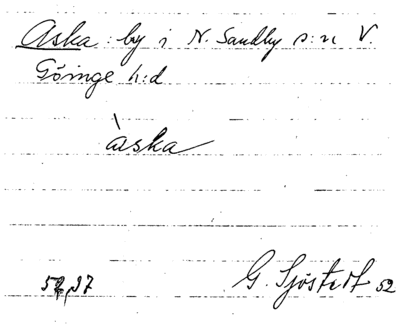 Aska: by i N. Sandby s:n V.
Göinge h:d
àska
G. Sjöstedt 52